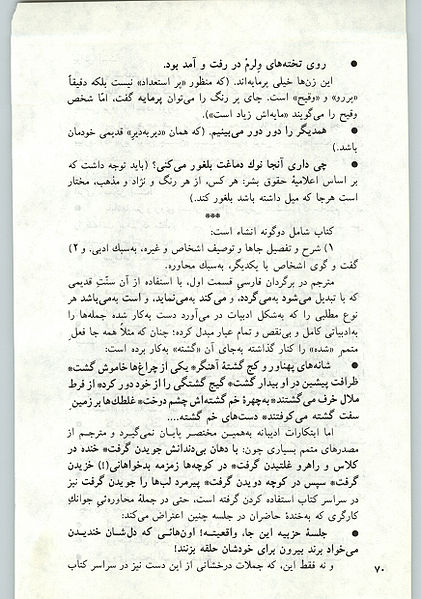 ● روی تخته‌های ولرم در رفت و آمد بود.
این زن‌ها خیلی پرمایه‌اند. (که منظور «پر استعداد» نیست بلکه دقیقاً
«پررو» و «وقیح» است. چای پر رنگ را می‌توان پرمایه گفت، امّا شخص
وقیح را می‌گویند «مایه‌اش زیاد است».)
● همدیگر را دور دور می‌بینیم. (که همان «دیربه‌دیر» قدیمی خودمان
باشد.)
● چی داری آنجا نوك دماغت بلغور می‌کنی؟ (باید توجه داشت که
بر اساس اعلامیهٔ حقوق بشر: هر کس، از هر رنگ و نژاد و مذهب، مختار
است هرجا که میل داشته باشد بلغور کند.)
***
کتاب شامل دوگونه انشاء است:
۱) شرح و تفصیل جاها و توصیف اشخاص و غیره، به‌سبك ادبی. و ۲)
گفت و گوی اشخاص با یکدیگر، به‌سبك محاوره.
مترجم در برگردان فارسیِ قسمت اول، با استفاده از آن سنّتِ قدیمی
که با تبدیل می‌شود به‌می‌گردد، و می‌کند به‌می‌نماید، و است به‌می‌باشد هر
نوع مطلبی را که به‌شکل ادبیات در می‌آورد دست به‌کار شده جمله‌ها را
به‌ادبیاتی کامل و بی‌نقص و تمام عیار مبدل کرده؛ چنان که مثلاً همه جا فعل
متمم «شده» را کنار گذاشته به‌جای آن «گشته» به‌کار برده است:
● شانه‌های پهناور و کج گشتهٔ آهنگر* یکی از چراغ‌ها خاموش گشت*
ظرافت پیشین در او بیدار گشت* گیج گشتگی را از خود دور کرد* از فرط
ملال خرف می‌گشتند* به‌چهرهٔ خم گشته‌اش چشم دوخت* غلطك‌ها بر زمین
سفت گشته می‌کوفتند* دست‌های خم گشته....
اما ابتکارات ادیبانه به‌همین مختصر پایان نمی‌گیرد و مترجم از
مصدرهای متمم بسیاری چون: با دهان بی‌دندانش جویدن گرفت* خنده در
کلاس و راهرو غلتیدن گرفت* در کوچه‌ها زمزمه بدخواهانی(!) خزیدن
گرفت* سپس در کوچه دویدن گرفت* پیرمرد لب‌ها را جویدن گرفت نیز
در سراسر کتاب استفاده کردن گرفته است، حتی در جملهٔ محاوره‌ئیِ جوانك
کارگری که به‌خندهٔ حاضران در جلسه چنین اعتراض می‌کند:
● جلسهٔ حزبیه این جا، واقعیته! اون‌هائی که دل‌شان خندیدن
می‌خواد برند بیرون برای خودشان حلقه بزنند!
و نه فقط این، که جملات درخشانی از این دست نیز در سراسر کتاب
۷۰